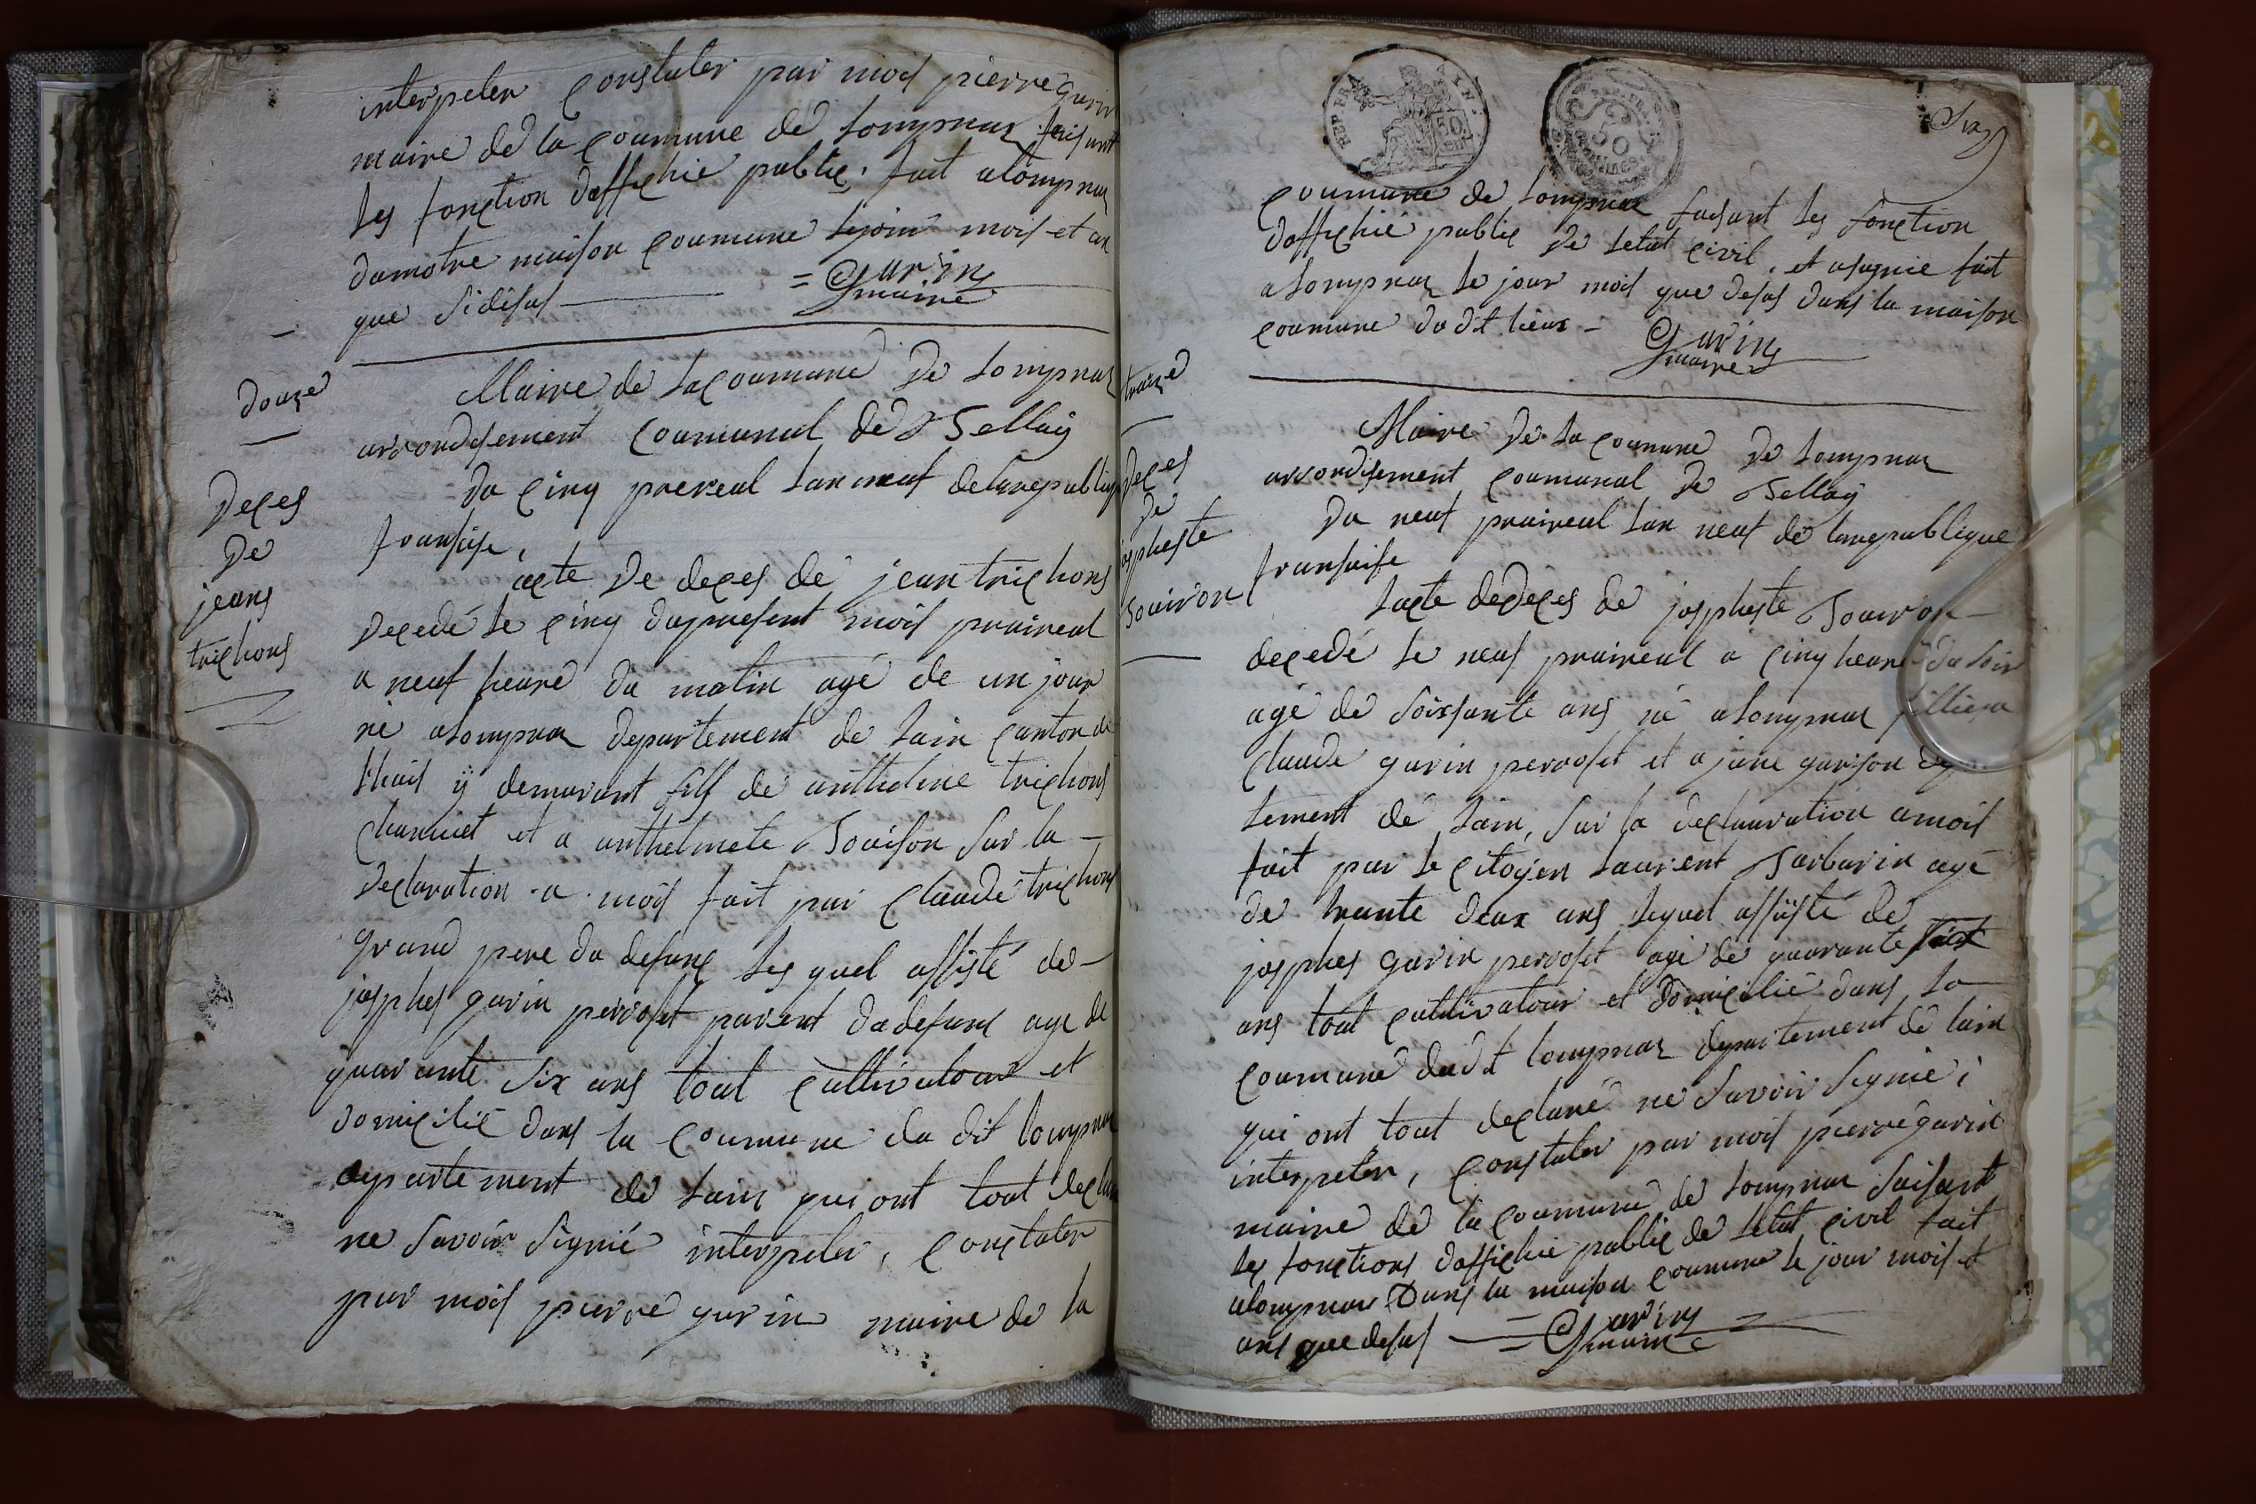 interpeler constater par mois pierre gurin
maire de la coumune de lompnas faisant
les fonction daffichié public. fait alompnas
damotre maison coumune lejoin mois et an
que sidesus = Gurin
maire
douze
Maire de lacoumune de lompnas
arrondisement coumunal de Belley
du cinq prereal lan neuf delarepublique
fransaise,
deces
de
jeans
trichons
acte de deces de jean trichons
decedé le cinq dupresent mois praireal
a neuf heure du matin agé de un jour
né alompnas departement de lain canton de
lhuis ÿ demurant fils de anthelme trichons
channet et a anthelmete Bouison sur la
declaration a mois fait par claude trichons
grand pere du defunc les quel assisté de
josphes gurin perroset parent dudefunt agé de
quarante six ans tout cultivatour et
domicilié dans la coumune du dit lompnas
departement de lain qui ont tout declaré
ne savoir signié interpeler, constater
par mois pierre gurin maire de la
REP. FRA.
50
CEN.
50
Six
coumune de lompnas faisant les fonction
daffichié public de letat civil. et asignie fait
alompnas le jour mois que desus dans la maison
coumune du dit lieux - Gurin
maire
traize
Maire de la coumune de lompnas
arrondisement coumunal de Belley
du neuf praireal lan neuf de larepublique
fransaise
deces
de
jospheste
Bouiron
lacte dedeces de jospheste Bouiron
decedé le neuf praireal a cinq heure du soir
agé de soissante ans né alompnas
claude gurin perroset et a jane gurison depar
tement de lain, sur la declauration amois
fait par le citoyen laurent Barbarin agé
de trante deux ans lequel assisté de
josphes gurin perroset agé de quarante six
ans tout cultivatour et domicilié dans la
coumune dudit lompnas departement de lain
qui ont tout declaré ne savoir signié i
interpeler, constater par mois pierre gurin
maire de la coumune de lompnas faisant
les fonctions daffichie public de letat civil fait
alompnas Dans la maison coumune le jour mois et
ans que desus = Gurin
maire